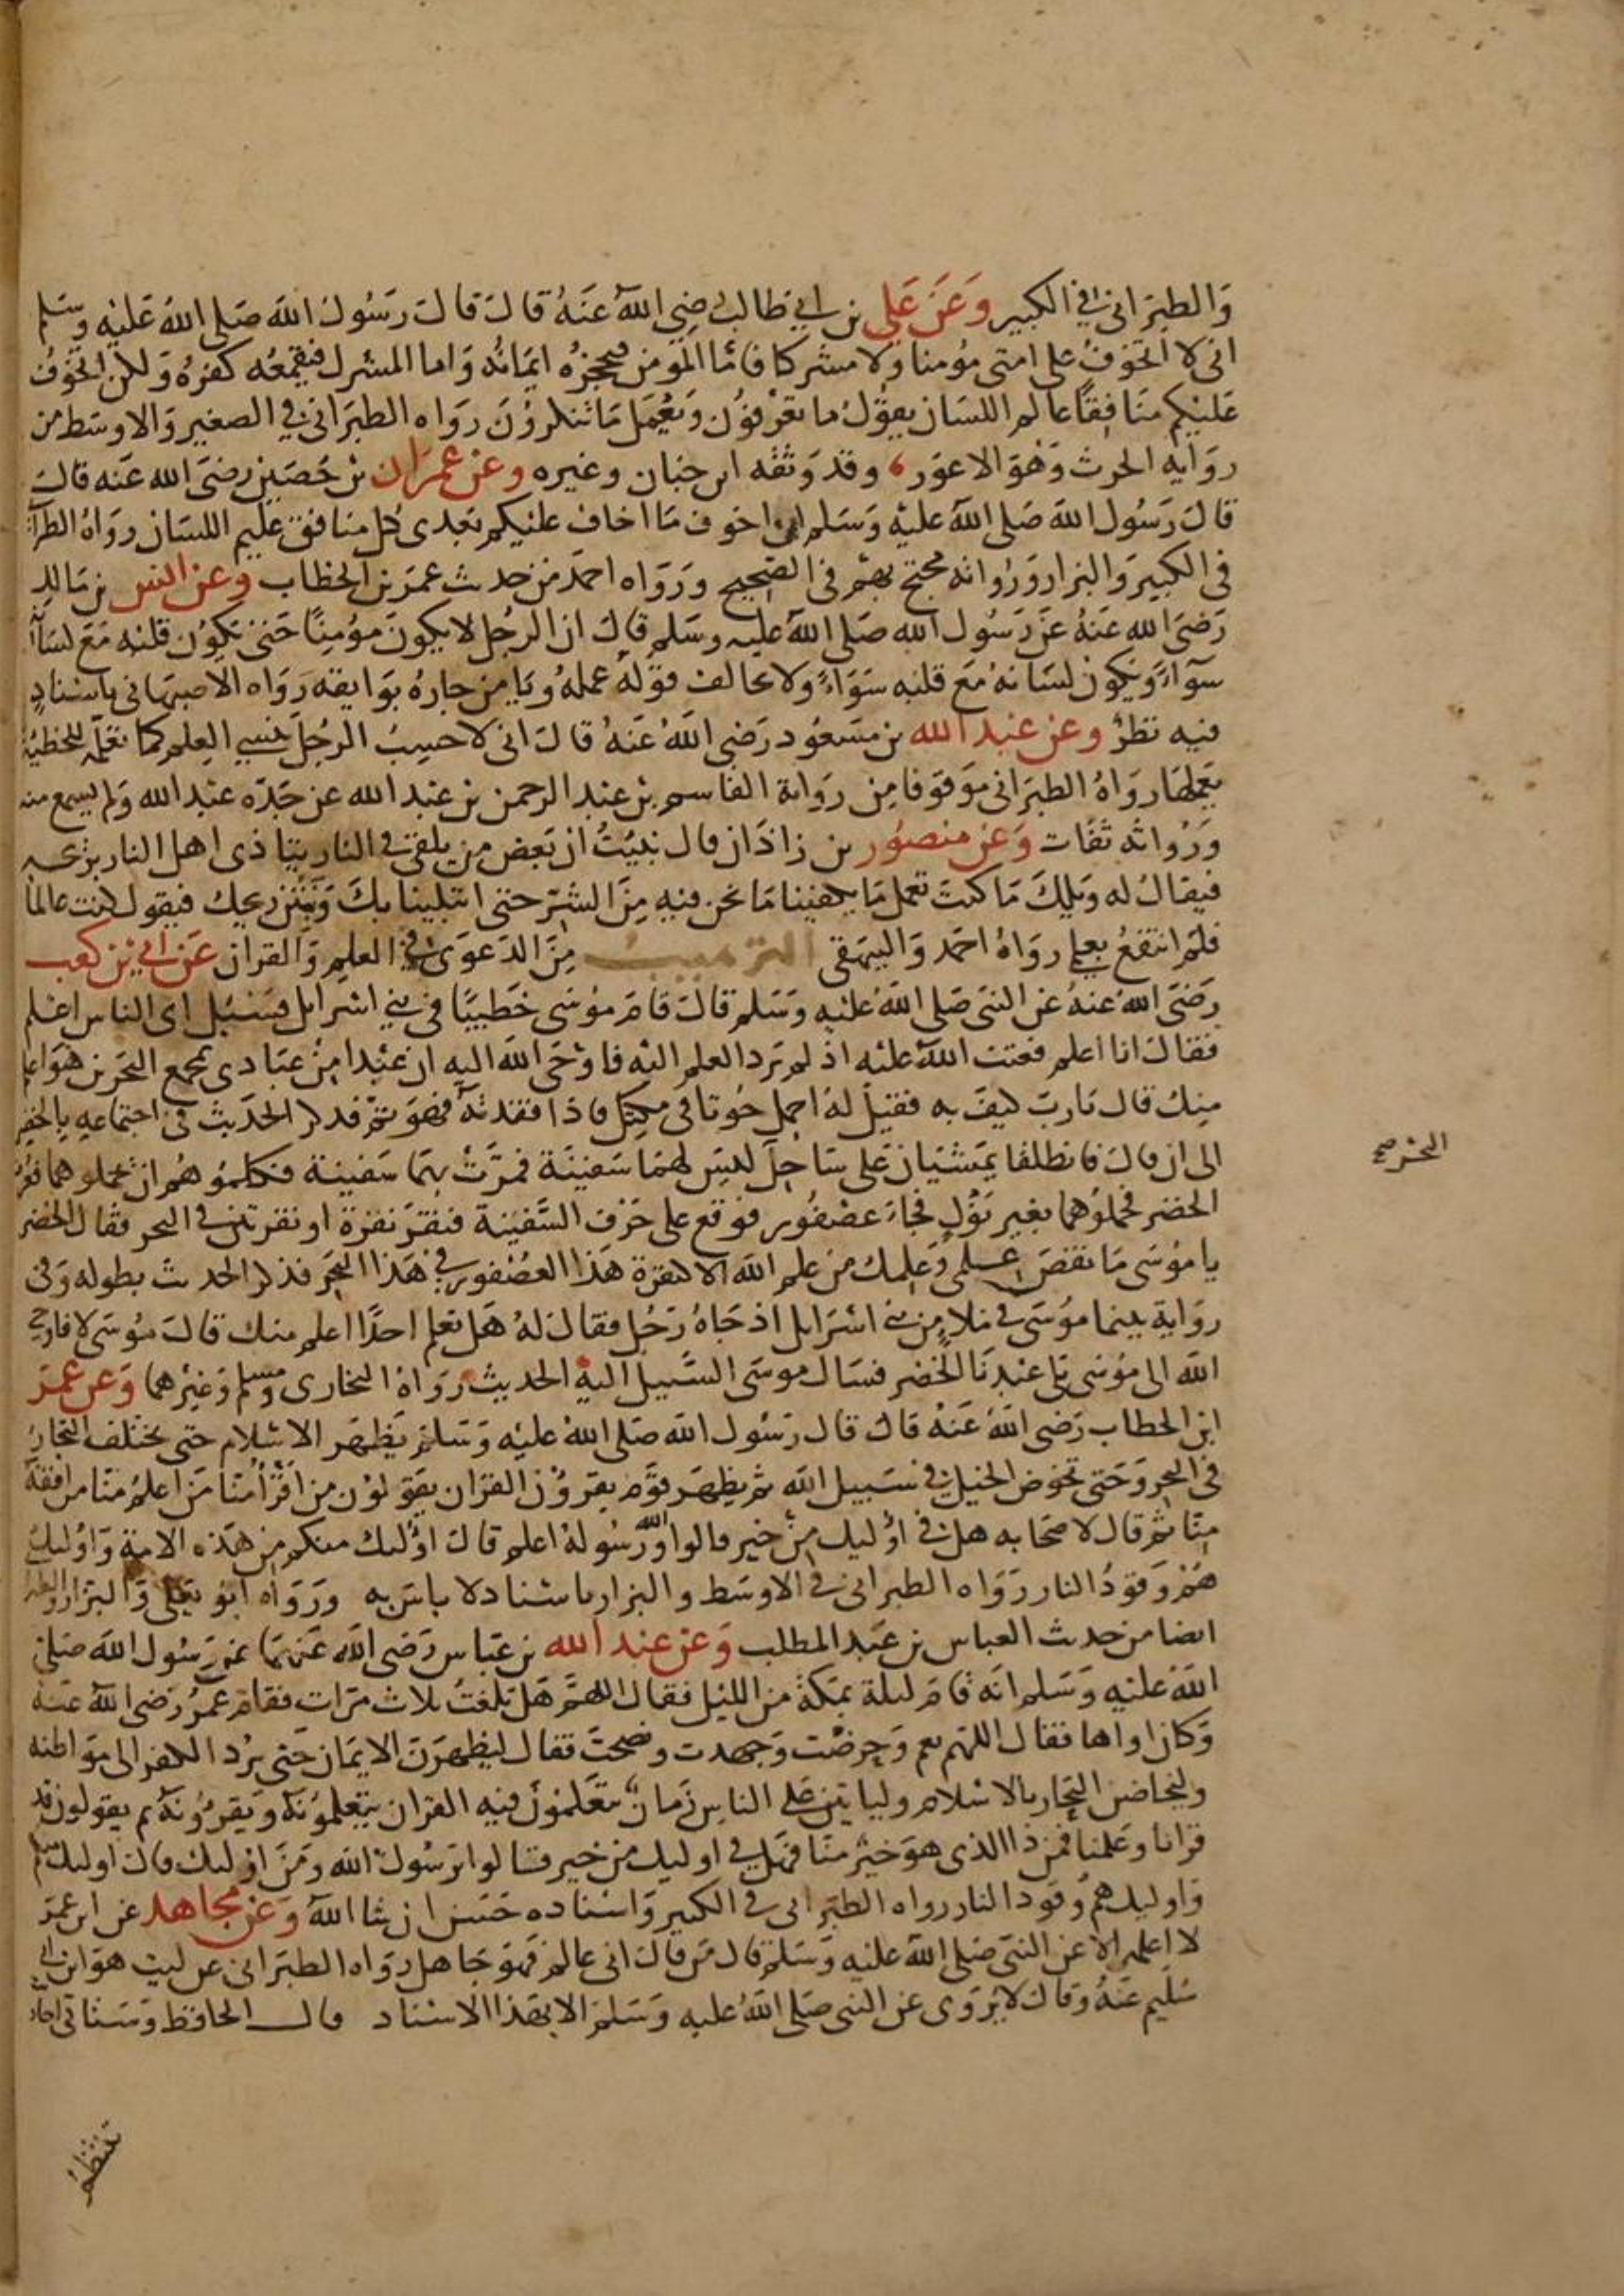 وَالطبَرانى في الكبير وَعَن عَلي بن ابي طالب رضِي اللهُ عَنهُ قالَ قالَ رَسُولُ اللهَ صَلى اللهُ عَليْه وسَلم
انى لا اتخوفُ على امتى مؤمنا ولا مشركا فامَّا المومن فيحجزهُ ايمَانهُ وَاما المشرك فيقمعُه كفرهُ وَلكن اتخوفُ
عَليْكم منَافِقًا عالم اللسَان يقوْلُ ما تعْرفوُن وَيعْمَل مَا تنكروُنَ روَاه الطبَرانى في الصغير وَالاوسَط من
روَايه الحرث وَهوَ الاعوَر وقد وَثقه ابن حبَان وغيره وعن عمرَان بن حُصَين رضىَ الله عَنه قالَ
قالَ رَسُول اللهَ صَلى اللهَ عليْهِ وَسَلم ان اخوف مَا اخاف عليْكم بَعدى كل منافق عليم اللسَان روَاهُ الطبرَا
فى الكبير وَالبزار وَرُوَاته محتج بهمْ فى الصَحيح ورَوَاه احمَد من حديث عمَر بن الخطاب وعن انس بن مَالك
رَضىَ الله عَنهُ عَن رَسُول الله صَلى اللهَ عليه وسَلم قالَ ان الرجُل لا يكونَ مؤمِنًا حَتى يكوُن قلبُه مَعَ لسَانه
سوآءً وَيكون لسَانهُ مَع قلبه سَوَاءً ولا يخالف قولهُ عملهُ وَيَامن جارهُ بوَايقه رَوَاه الاصبهَانى باسنادٍ
فيه نظرٌ وعن عَبد الله بن مَسعُود رَضي اللهُ عَنهُ قالَ انى لاحسِبُ الرجُلَ ينسي العِلم كما تعَلمه للخطيَّة
يَعملهَا روَاهُ الطبَرانى موَقوفا مِن روَاية القاسم بن عبد الرحمن بن عَبد الله عن جَدّه عَبد الله وَلم يسمع منه
وَرُوَاته ثقَات وَعَن منصوُر بن زاذَان قال نبيتُ ان بَعض من يلقى في النار يتاذى اهل النار بريحه
فيقالُ له وَيلكَ مَا كنتَ تعمل مَا يكفينا مَا نحن فيهِ مِنَ الشرّ حتى ابتلينا بكَ وَبنتن ريحك فيقول كنت عالما
فلم انتفعُ بعلمى روَاهُ احمَد وَالبيهقى الترهيبُ مِنَ الدَعوَى في العلمِ وَالقران عَن ابي بن كعب
رَضىَ اللهُ عنهُ عن النبىَ صَلى اللهُ عليْه وَسَلم قالَ قامَ مؤسَى خَطيبًا في بني اسْرايل فسُئِل اى الناس اعلم
فقالَ انا اعلم فعتب اللهَ عليْه اذ لم يَرد العلم اليْه فاوْحَى اللهَ اليه ان عَبْدا مِن عبَادى بمجمع البَحرَين هوَ اعلم
مِنك قالَ يَاربّ كيفَ به فقيل لهُ احمِل حُوتا فى مكتل فاذا فقدتهُ فهوَ ثمّ فذكر الحَدَيث فى اجتماعهِ بالخضر
الى ان قالَ فانطلقا يمَشيَان عَلى سَاحِلَ ليسَ لهمَا سَفينَة فمرّتْ بهَما سَفينة فكلموُهم ان يحملوهما فعُرِف
الخضر فحملوُهما بغير نَوْلٍ فجاءَ عصْفُور فوَقع على حَرْف السَّفينة فنقرَ نقرة او نقرتين في البحر فقال الخضر
يا مؤسَى مَا نقصَ علمى وَعلمك من علم اللهَ الا كنقرة هَذا العُصْفور في هَذا البحَر فذكر الحديث بطوله وَفى
روَاية بينما موُسَى في ملإٍ من بني اسْرَايل اذ جَاهُ رَجُل فقالَ لهُ هَل تعلم احدًا اعلم منك قالَ مُوسَى لا فاوحى
اللهَ الى موُسَى بلى عَبْدنَا الخضر فسَال موسَى السَّبيل اليهِ الحديث رَوَاهُ البخارى ومسلم وَغيْرهما وَعن عمَر
ابن الخطاب رَضى اللهُ عَنهُ قالَ قال رَسُول الله صَلى اللهُ عليْه وَسَلم يَظهَر الاسْلام حتى تختلف التجارُ
في البحر وَحَتى تخوض الخيل في سَبيل اللهَ ثم يظهَر قوْم يقرَوُن القرَان يقوَلوُن من اقرَأُ منَا مَن اعلمُ منّا من افقهُ
منّا ثم قالَ لاصحَابه هل في اوْليك مِن خير قالوا اللهُ وَرَسُولهُ اعلم قالَ اوْليك منكم من هَذه الامة وَاوْليك
هُمْ وَقودُ النار رَوَاه الطبرانى في الاوسَط والبزار باسْناد لا باسَ به ورَوَاه ابُو يَعلى وَالبَزار والطبرا
ايضا من حديث العباس بن عَبد المطلب وَعَن عَبد الله بن عَبّاس رَضي الله عَنهُمَا عن رَسُول اللهَ صَلى
اللهَ عَليْهِ وَسَلم انّه قامَ ليلة بمَكةَ من الليْل فقال اللهمَّ هَل بَلغتُ ثلاث مَرات فقامَ عمرُ رَضي اللهَ عَنهُ
وَكان اواها فقال اللهَم نعم وَحرَضْت وَجهدت وَنصحتَ فقال ليَظهَرَنّ الايمَان حَتى يرُد الكفر الى موَاطنه
وليخاضن البحَار بالاسْلام وليَاتين عَلى الناس زَمانٌ يتعَلموُنَ فيه القرَان يتعَلموُنهُ ويَقرَؤُنهُ ثم يقولون قد
قرانا وعَلمنا فمن ذا الذى هوَ خيرُ منّا فهَل في اوليك من خير قالوا يرَسُولَ الله ومَنَ اوْليك قالَ اوليك منكم
وَاوليك همُ وَقود النار رواه الطبَرانى في الكبير وَاسْناده حَسَن ان شا اللهُ وَعَن مجاهد عَن ابن عمَر
لا اعلمه الا عن النبى صَلى اللهَ عليْه وسَلم قال مَن قالَ انى عالم فهوَ جَاهل روَاه الطبَرانى عن ليث هوَ ابن ابى
سُليم عَنهُ وَقالَ لا يُروَى عن النبى صَلى اللهُ عليه وَسَلم الا بهَذا الاسْناد قال الحافظ وَسَتاتى احاد
الخضر صح
تنتظم